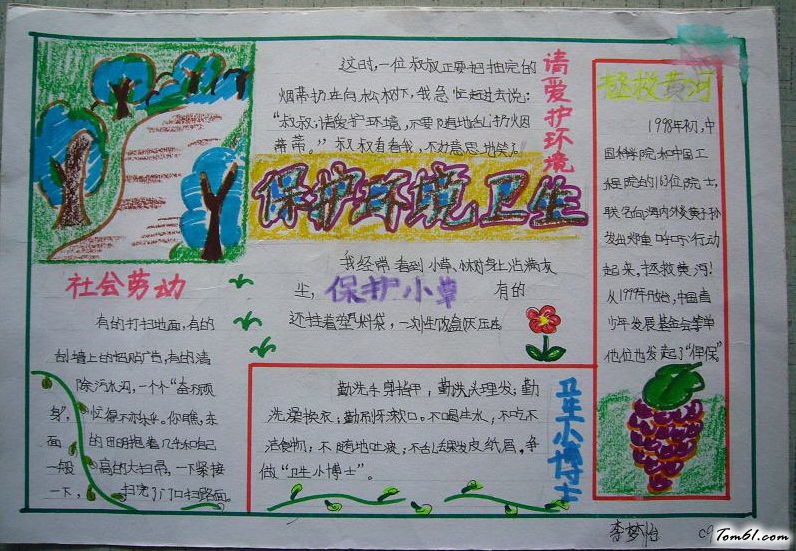 这时,一位叔叔正要把抽完的
烟蒂扔在向松树下,我急忙赶过去说:
“叔叔,请爱护环境,不要随地乱扔烟
蒂。”叔叔看看我,不好意思地笑了。
请爱护环境
保护环境卫生
社会劳动
有的打扫地面,有的
刮墙上的招贴广告,有的清
除污水沟,一个个“奋不顾
身”,忙得不亦乐乎。你瞧,东
面的田明抱着几乎和自己
一般高的大扫帚,一下紧接
一下,扫完了门口扫路面。
我经常看到小草、树身上沾满灰
尘,保护小草有的
还挂着塑料袋,一次性饭盒
勤洗手剪指甲,勤洗头理发;勤
洗澡换衣;勤刷牙漱口。不喝生水,不吃不
洁食物;不随地吐痰;不乱丢果皮纸屑。争
做“卫生小博士”。
卫生小博士
拯救黄河
1998年初,中
国科学院和中国工
程院的163位院士,
联名向海内外炎黄子孙
发出郑重呼吁:行动
起来,拯救黄河!
从1999年开始,中国青
少年发展基金会等单
他位也发起了“保
李梦怡
Tom61.com